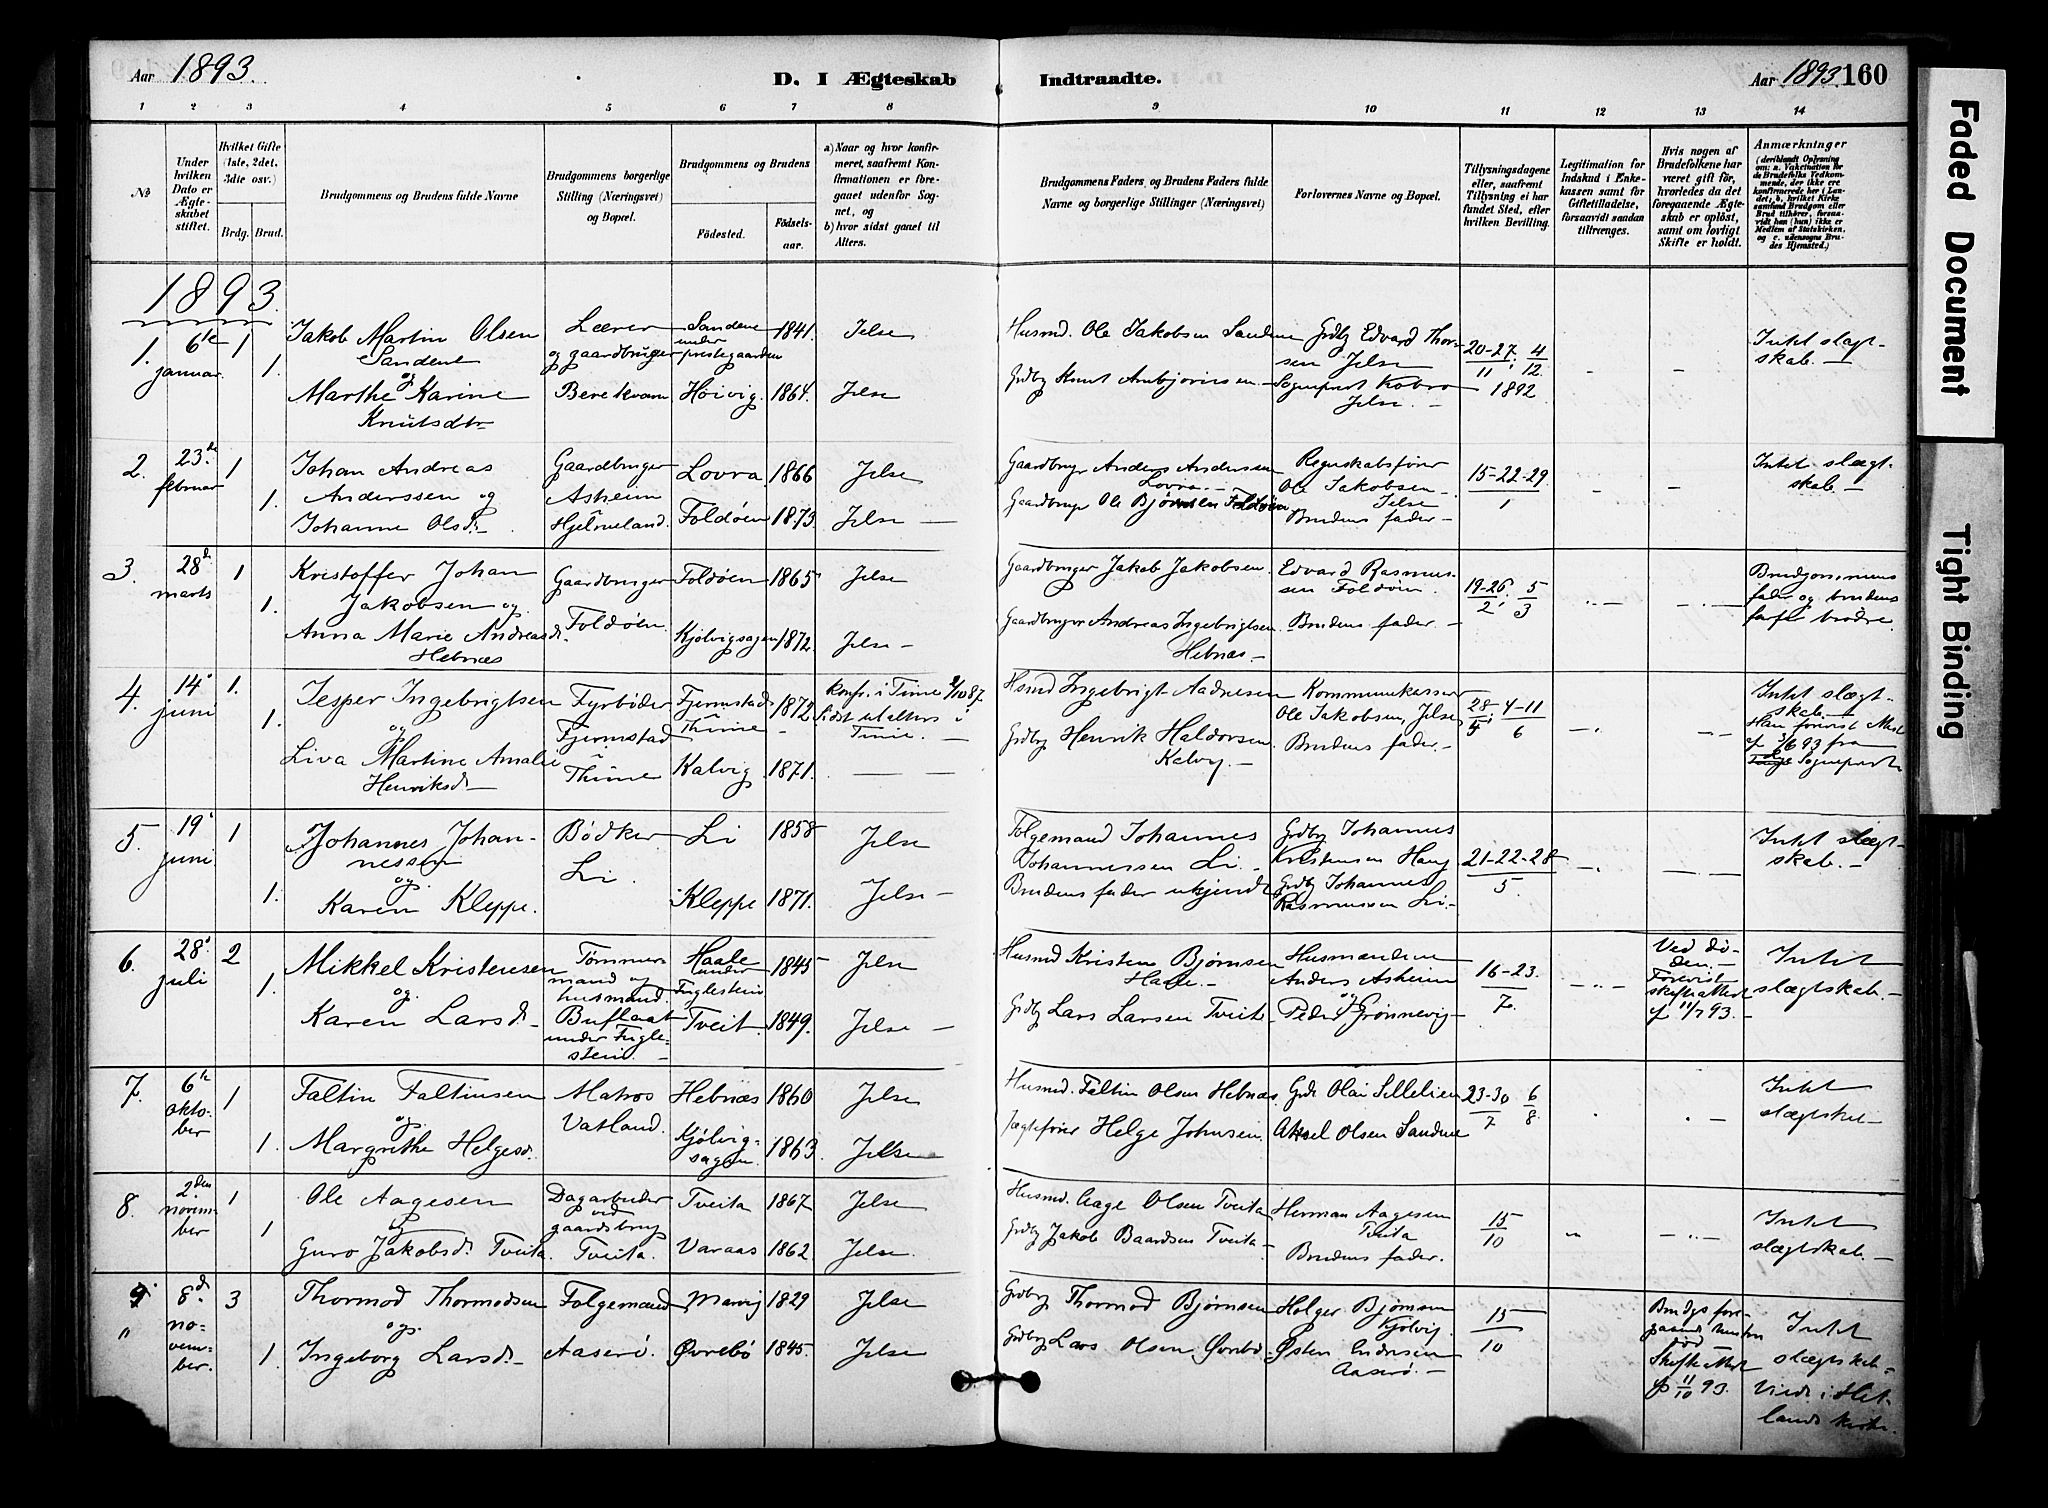 Aar 1893.
D. I Ægteskab Indtraadte.
Aar 1893 160
1 2 3 4 5 6 7 8 9 10 11 12 13 14
No
Under hvilken Dato er Ægteskabet stiftet.
Hvilket Gifte (1ste, 2det, 3die osv.)
Brdg. Brud.
Brudgommens og Brudens fulde Navne
Brudgommens borgerlige Stilling (Næringsvei) og Bopæl.
Brudgommens og Brudens
Födested.
Födselsaar.
a) Naar og hvor konfirmeret, saafremt Konfirmationen er foregaaet udenfor Sognet, og
b) hvor sidst gaaet til Alters.
Brudgommens Faders og Brudens Faders fulde Navne og borgerlige Stillinger (Næringsvei)
Forlovernes Navne og Bopæl.
Tillysningsdagene eller, saafremt Tillysning ei har fundet Sted, efter hvilken Bevilling.
Legitimation for Indskud i Enkekassen samt for Giftetilladelse, forsaavidt saadan tiltrænges.
Hvis nogen af Brudefolkene har været gift før, hvorledes da det foregaaende Ægteskab er opløst, samt om lovligt Skifte er holdt.
Anmærkninger
(deriblandt Oplysning om: a. Vakcination for de Brudefolks Vedkommende, der ikke ere konfirmerede her i Landet; b. hvilket Kirkesamfund Brudgom eller Brud tilhører, forsaavidt han (hun) ikke er Medlem af Statskirken, og c. udensogns Brudes Hjemsted.)
1893.
1. 6te januar. 1 1.
Jakob Martin Olsen
Sandene
og
Marthe Karine
Knutsdtr
Lærer
og gaardbruger
Berekvam
Sandene
under
prestegaarden
1841.
Jelse
Høivig. 1864. Jelse
Husmd. Ole Jakobsen Sandene
Grdbr Knut Ambjørnsen.
Grdbr Edvard Thorsen Jelse
Sogneprest Kobro
Jelse.
20-27. 4
11 12.
1892
Intet slægtskab.
2. 23de februar 1 1.
Johan Andreas
Anderssen og
Johanne Olsd.
Gaardbruger
Asheim
Hjelmeland.
Lovra 1866 Jelse
Foldøen 1873. Jelse
Gaardbrugr Anders Andersen
Lovra.
Gaardbrugr Ole Bjørnsen Foldøen
Regnskabsfører
Ole Jakobsen
Jelse
Brudens fader
15-22-29
1
Intet slægtskab.
3. 28de marts 1 1.
Kristoffer Johan
Jakobsen og
Anna Marie Andreasd.
Hebnæs
Gaardbruger
Foldøen.
Foldøen 1865 Jelse
Kjølvigsagen 1872. Jelse
Gaardbruger Jakob Jakobsen.
Gaardbruger Andreas Ingebrigtsen
Hebnæs.
Edvard Rasmussen Foldøen.
Brudens fader.
19-26. 5
2 3
Brudgommens
fader og brudens
farfar brødre.
4. 14 juni 1. 1.
Jesper Ingebrigtsen
og
Liva Martine Amalie
Henriksd.
Fyrbøder
Fjermstad
Thime
Fjermstad
Thime
1872
konf. i Time 2/10 87.
sidst til alters i
Time.
Kalvig 1871.
Hsmd Ingebrigt Aadnesen
Grdbr Henrik Haldorsen
Kalvig.
Kommunekasser
Ole Jakobsen, Jelse
Brudens fader.
28 4-11
5 6
Intet slægtskab.
Han forevist Attest
af 3/6 93 fra
Sogneprest
5. 19 juni 1 1.
Johannes Johannessen
og.
Karen Kleppe.
Bødker
Li.
Li 1858 Jelse
Kleppe 1871. Jelse
Folgemand Johannes
Johannessen Li.
Brudens fader ukjendt
Grdbr Johannes
Kristensen Haug
Grdbr Johannes
Rasmussen Li.
21-22-28
5
Intet slægtskab.
6. 28 juli 2 1.
Mikkel Kristensen
og.
Karen Larsd.
Tømmermand og
husmand.
Buflaat
under Fuglestein.
Haale
under
Fuglestein
1845 Jelse
Tveit 1849. Jelse
Husmd Kristen Bjørnsen
Grdbr Lars Larsen Tveit
Husmændene
Anders Asheim
og
Peder Grønnevig
16-23.
7.
Ved døden.
Forevist
skifteattest
af 11/7 93.
Intet
slægtskab.
7. 6te oktober 1 1.
Faltin Faltinsen
og.
Margrethe Helgesd.
Matros
Vatland.
Hebnæs 1860 Jelse
Kjølvigsagen. 1863. Jelse
Husmd. Faltin Olsen Hebnæs.
Jægtefører Helge Johnsen.
Grdbr Olai Sellelien
Aksel Olsen Sandene
23-30 6
7 8
Intet
slægtskab
8. 2den november 1 1
Ole Aagesen
og
Guro Jakobsd. Tveita.
Dagarbeider
ved
gaardsbrug
Tveita.
Tveita 1867 Jelse
Varaas 1862. Jelse.
Husmd. Aage Olsen Tveita
Grdbr Jakob Baardsen Tveita
Herman Aagesen
Tveita
Brudens fader.
15
10
Intet
slægtskab.
9. 8de november. 3 1.
Thormod Thormodsen
og.
Ingeborg Larsd.
Folgemand
Aaserø.
Marvig 1829 Jelse
Øvrebø 1845. Jelse
Grdbr Thormod Bjørnsen
Grdbr Lars Olsen Øvrebø
Holger Bjørnsen
Kjølvig.
Østen Endresen
Aaserø.
15
10
Brudgs foregaaende hustru
død
Skifteattest
af 11/10 93.
Intet
slægtskab.
Viede i Hetlands kirke.
Faded Document
Tight Binding